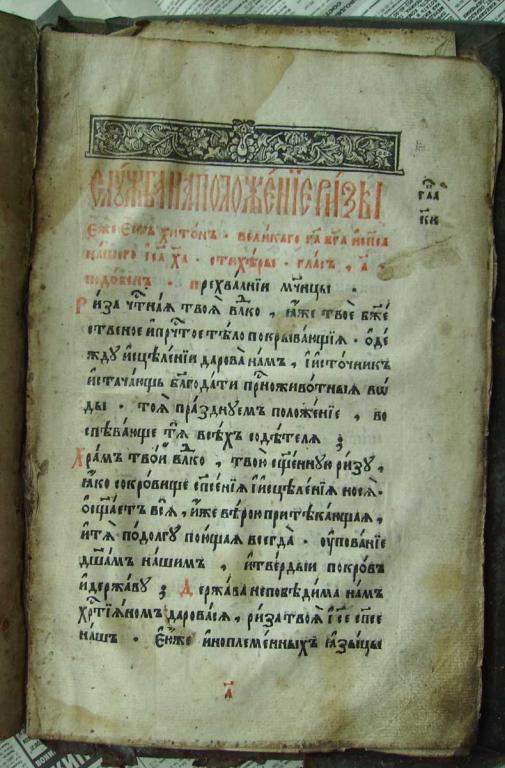 СЛꙊЖБА НА ПОЛОЖЕ́НЇЕ РИ́ЗЫ
Е҆́же є҆́сть хито́нъ · вели́каго га҃ бг҃а и҆ сп҃са
на́шего і҆са хр҃а · стихе́ры · гла́съ , а҃ ·
подо́бенъ · прехва́лнїи мч҃нцы ·
Ри́за чⷭ҇тна́я твоѧ̀ влⷣко , ꙗ҆́же твоѐ бж҃е
ственое и҆ прчⷭ҇тое тѣ́ло покрыва́ющїѧ · ѻ҆де
жду и҆сцѣле́нїи дарова̀ на́мъ , и҆ и҆сто́чникъ
и҆стача́ющь блг҃ода́ти при́сноживо́тныѧ во
ды̀ · тоѧ̀ пра́зднуемъ положе́нїе , во
спѣва́юще тѧ̀ всѣ́хъ содѣ́телѧ ;
Хра́мъ тво́й влⷣко , твою̀ сщ҃е́нную ри́зу ,
ꙗ҆́ко сокро́вище сп҃се́нїѧ и҆ и҆сцѣле́нїѧ носѧ̀ ·
ѡ҆сщ҃а́етъ всѧ̀ , и҆̀же вѣ́рою притека́ющая ,
и҆ тѧ̀ по до́лгу пою́щая всегда̀ · ᲂу҆пова́нїе
дш҃а́мъ на́шимъ , и҆ тве́рдыи покро́въ
и҆ держа́ву ; Держа́ва непобѣди́ма на́мъ
хрⷭ҇тїѧ́номъ дарова́сѧ , ри́за твоѧ̀ і҆и҃се сп҃се
на́шъ · Є҆ѧ́же и҆ноплеме́нныхъ ꙗ҆зы́цы
а҃